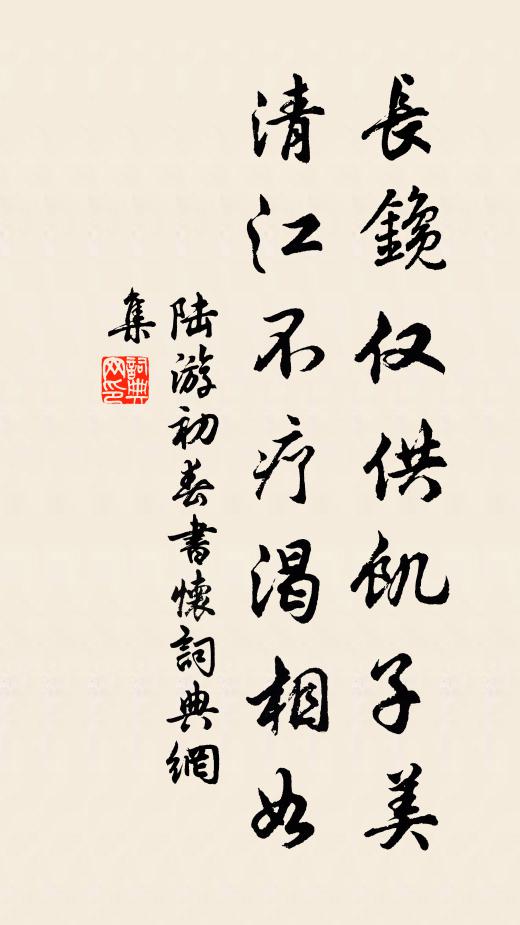 長鑱仅供飢子美
清江不疗渴相如
陆游初春書懷詞典網
集
詞典网印